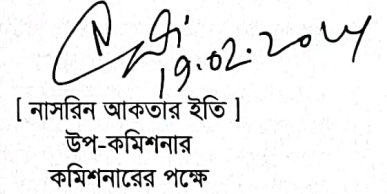 19.02.2024
[ নাসরিন আকতার ইতি ]
উপ-কমিশনার
কমিশনারের পক্ষে